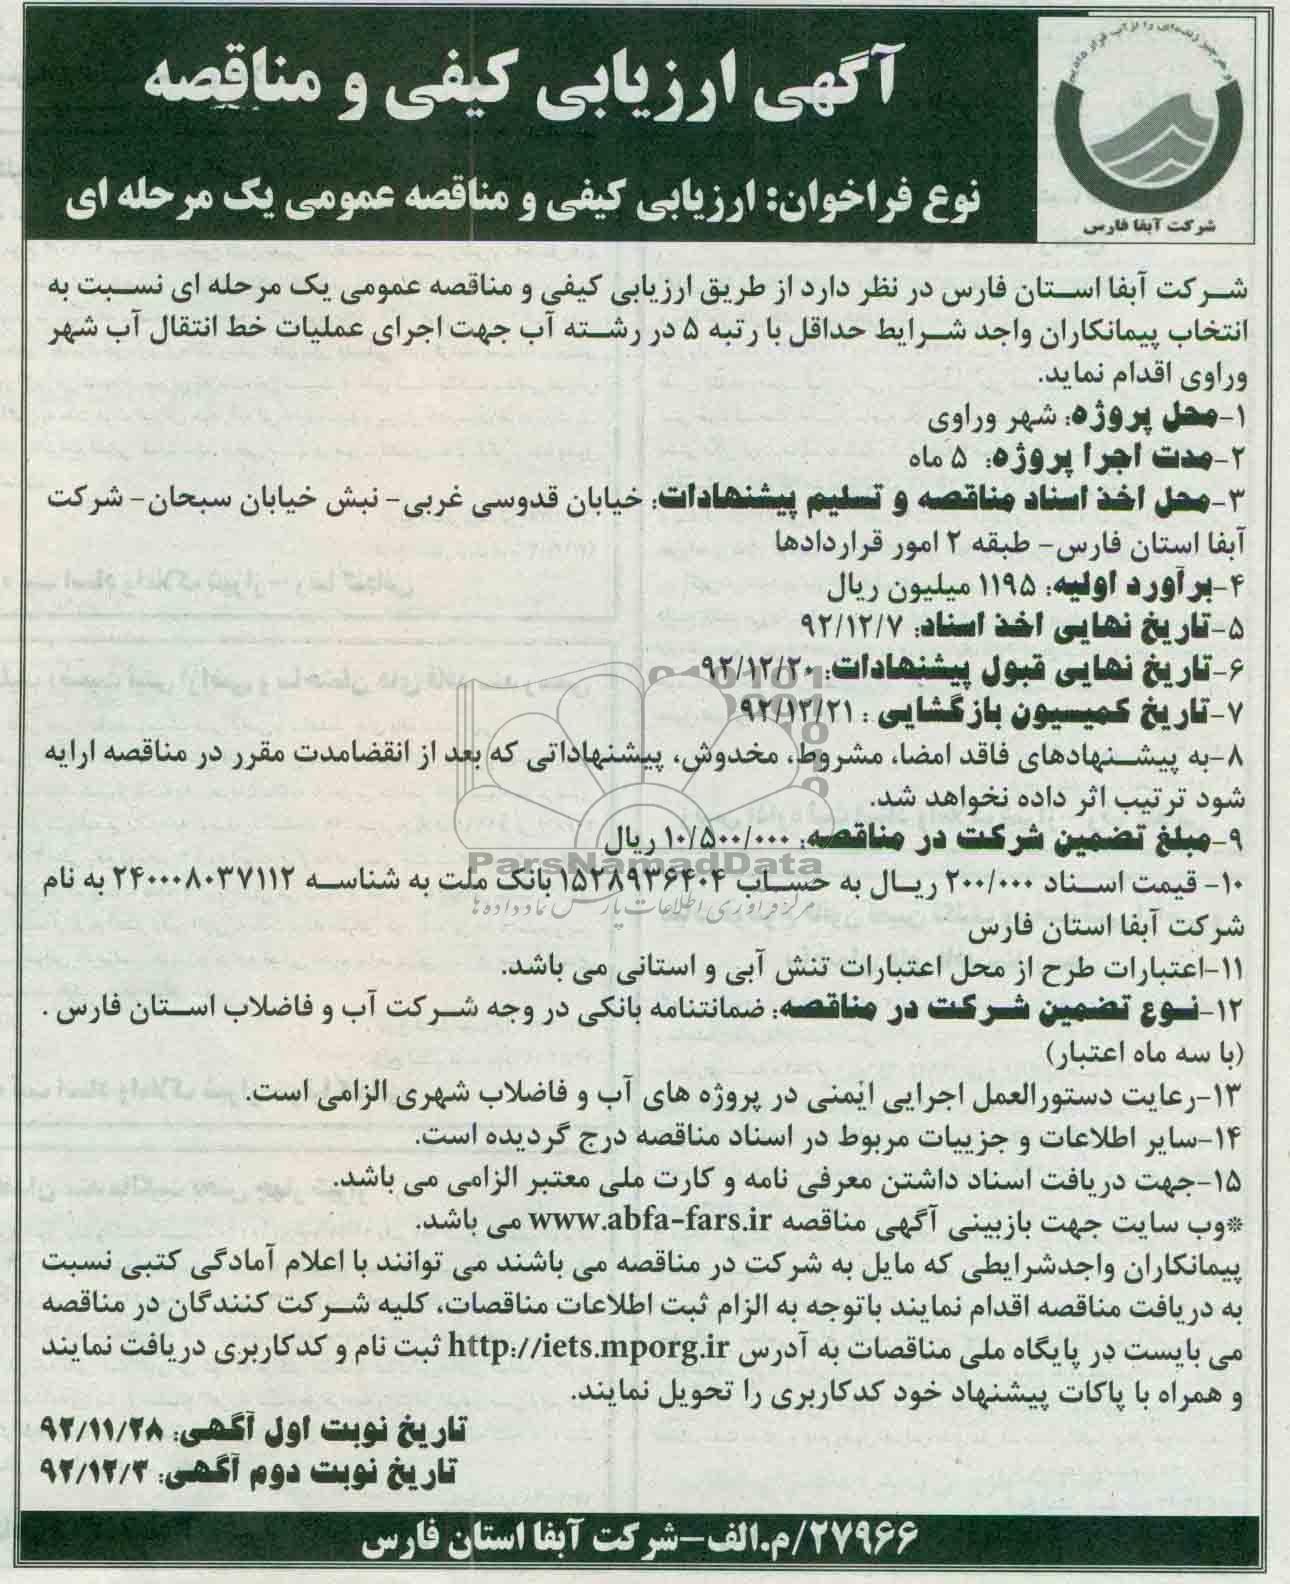 و هر چیز زنده‌ای را از آب قرار دادیم
شرکت آبفا فارس
آگهی ارزیابی کیفی و مناقصه
نوع فراخوان: ارزیابی کیفی و مناقصه عمومی یک مرحله ای
شرکت آبفا استان فارس در نظر دارد از طریق ارزیابی کیفی و مناقصه عمومی یک مرحله ای نسبت به
انتخاب پیمانکاران واجد شرایط حداقل با رتبه ۵ در رشته آب جهت اجرای عملیات خط انتقال آب شهر
وراوی اقدام نماید.
۱-محل پروژه: شهر وراوی
۲-مدت اجرا پروژه: ۵ ماه
۳-محل اخذ اسناد مناقصه و تسلیم پیشنهادات: خیابان قدوسی غربی- نبش خیابان سبحان- شرکت
آبفا استان فارس- طبقه ۲ امور قراردادها
۴-برآورد اولیه: ۱۱۹۵ میلیون ریال
۵-تاریخ نهایی اخذ اسناد: ۹۲/۱۲/۷
۶-تاریخ نهایی قبول پیشنهادات: ۹۲/۱۲/۲۰
۷-تاریخ کمیسیون بازگشایی : ۹۲/۱۲/۲۱
۸-به پیشنهادهای فاقد امضا، مشروط، مخدوش، پیشنهاداتی که بعد از انقضامدت مقرر در مناقصه ارایه
شود ترتیب اثر داده نخواهد شد.
۹-مبلغ تضمین شرکت در مناقصه: ۱۰/۵۰۰/۰۰۰ ریال
ParsNamadData
۱۰- قیمت اسناد ۲۰۰/۰۰۰ ریال به حساب ۱۵۲۸۹۳۶۴۰۴ بانک ملت به شناسه ۲۴۰۰۰۸۰۳۷۱۱۲ به نام
مرکز فرآوری اطلاعات پارس نماد داده ها
شرکت آبفا استان فارس
۱۱-اعتبارات طرح از محل اعتبارات تنش آبی و استانی می باشد.
۱۲-نوع تضمین شرکت در مناقصه: ضمانتنامه بانکی در وجه شرکت آب و فاضلاب استان فارس .
(با سه ماه اعتبار)
۱۳-رعایت دستورالعمل اجرایی ایمنی در پروژه های آب و فاضلاب شهری الزامی است.
۱۴-سایر اطلاعات و جزییات مربوط در اسناد مناقصه درج گردیده است.
۱۵-جهت دریافت اسناد داشتن معرفی نامه و کارت ملی معتبر الزامی می باشد.
*وب سایت جهت بازبینی آگهی مناقصه www.abfa-fars.ir می باشد.
پیمانکاران واجدشرایطی که مایل به شرکت در مناقصه می باشند می توانند با اعلام آمادگی کتبی نسبت
به دریافت مناقصه اقدام نمایند باتوجه به الزام ثبت اطلاعات مناقصات، کلیه شرکت کنندگان در مناقصه
می بایست در پایگاه ملی مناقصات به آدرس http://iets.mporg.ir ثبت نام و کدکاربری دریافت نمایند
و همراه با پاکات پیشنهاد خود کدکاربری را تحویل نمایند.
تاریخ نوبت اول آگهی: ۹۲/۱۱/۲۸
تاریخ نوبت دوم آگهی: ۹۲/۱۲/۳
۲۷۹۶۶/م.الف-شرکت آبفا استان فارس